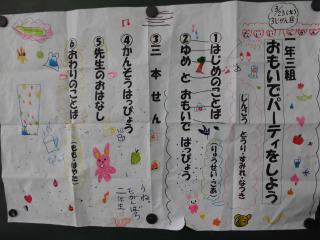 3/23(木)
3じかん目
一年三組
おもいでパーティをしよう
しんこう とうり・すみれ・なつき
①はじめのことば
(りゅうせい・こあ)
②ゆめ と おもいで はっぴょう
③三本せん
④かんそうはっぴょう
⑤先生のおはなし
⑥おわりのことば
(もも・はやた)
二年生